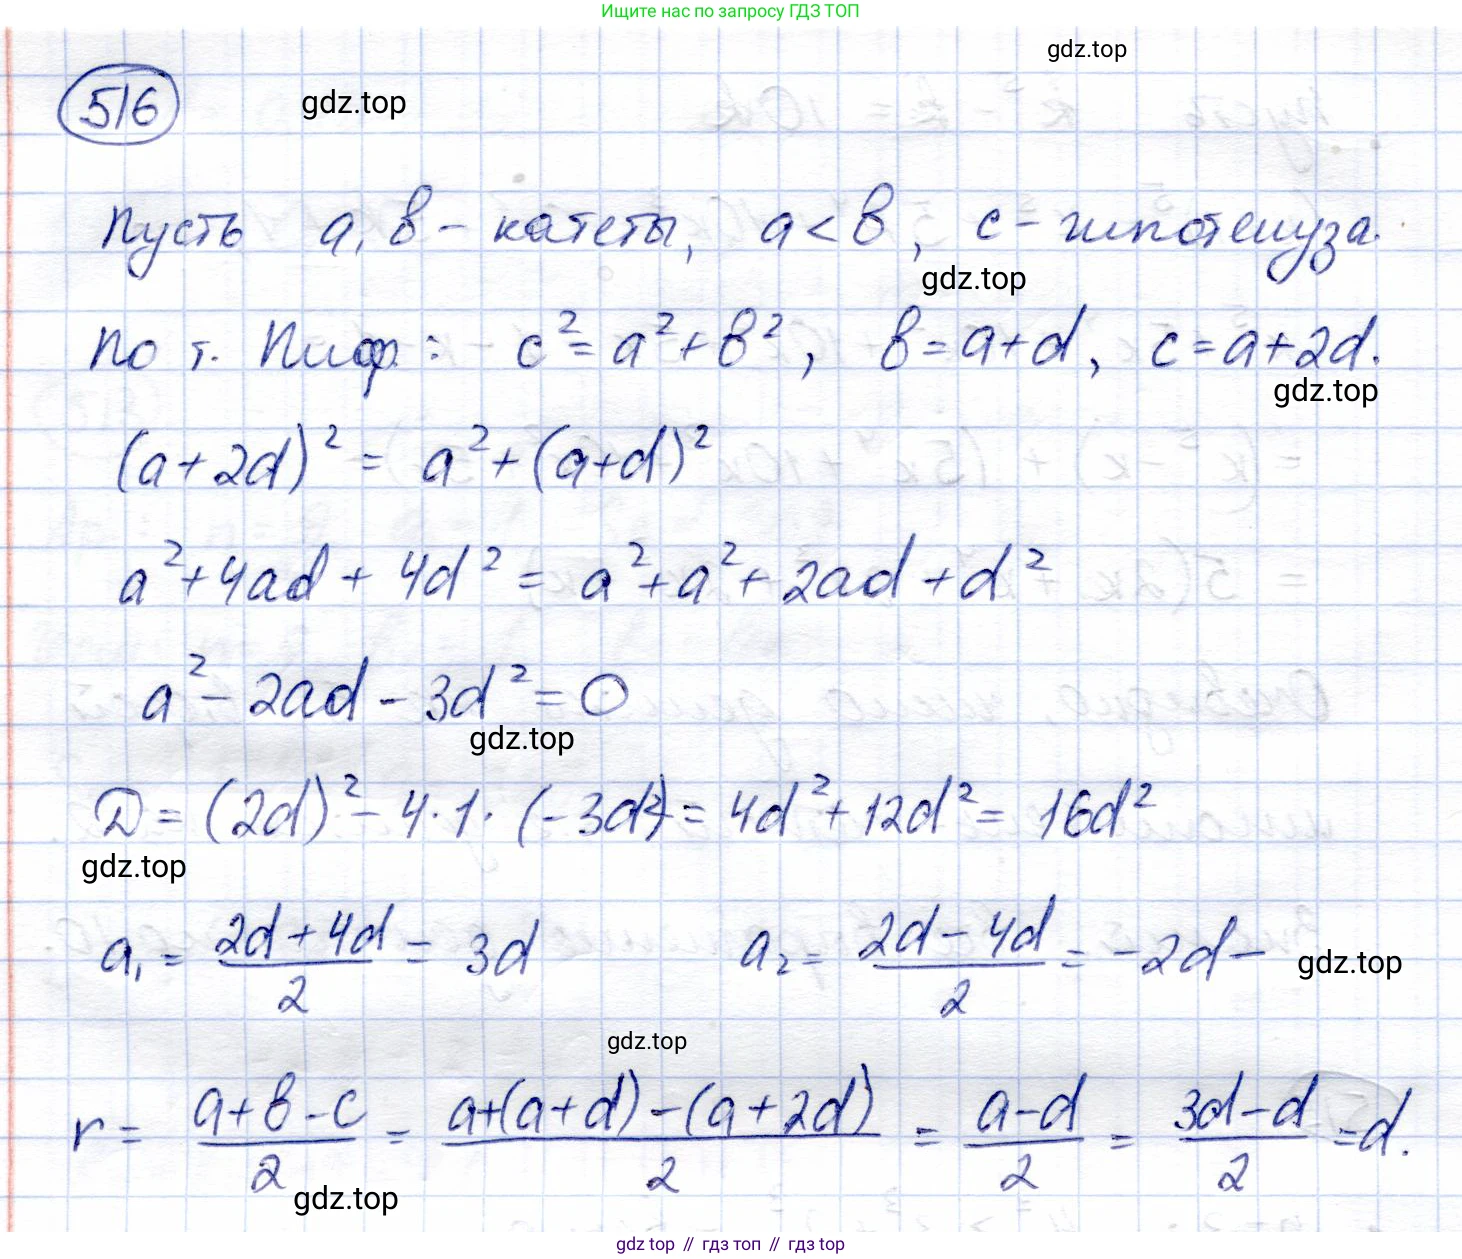 Ищите нас по запросу ГДЗ ТОП
gdz.top
516
gdz.top
Пусть a, b - катеты, a < b, c - гипотенуза.
gdz.top
По т. Пиф: c² = a² + b², b = a + d, c = a + 2d.
gdz.top
(a + 2d)² = a² + (a + d)²
a² + 4ad + 4d² = a² + a² + 2ad + d²
a² - 2ad - 3d² = 0
gdz.top
D = (2d)² - 4 · 1 · (-3d²) = 4d² + 12d² = 16d²
gdz.top
a₁ = (2d + 4d)/2 = 3d a₂ = (2d - 4d)/2 = -2d -
gdz.top
gdz.top
r = (a + b - c)/2 = (a + (a + d) - (a + 2d))/2 = (a - d)/2 = (3d - d)/2 = d.
gdz.top
gdz top // гдз топ // гдз top